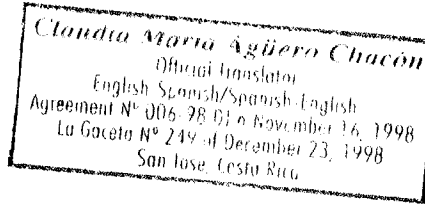 Claudia María Agüero Chacón
Official Translator
English Spanish/Spanish-English
Agreement Nº 006-98 DJ of November 16, 1998
La Gaceta Nº 249 of December 23, 1998
San José, Costa Rica